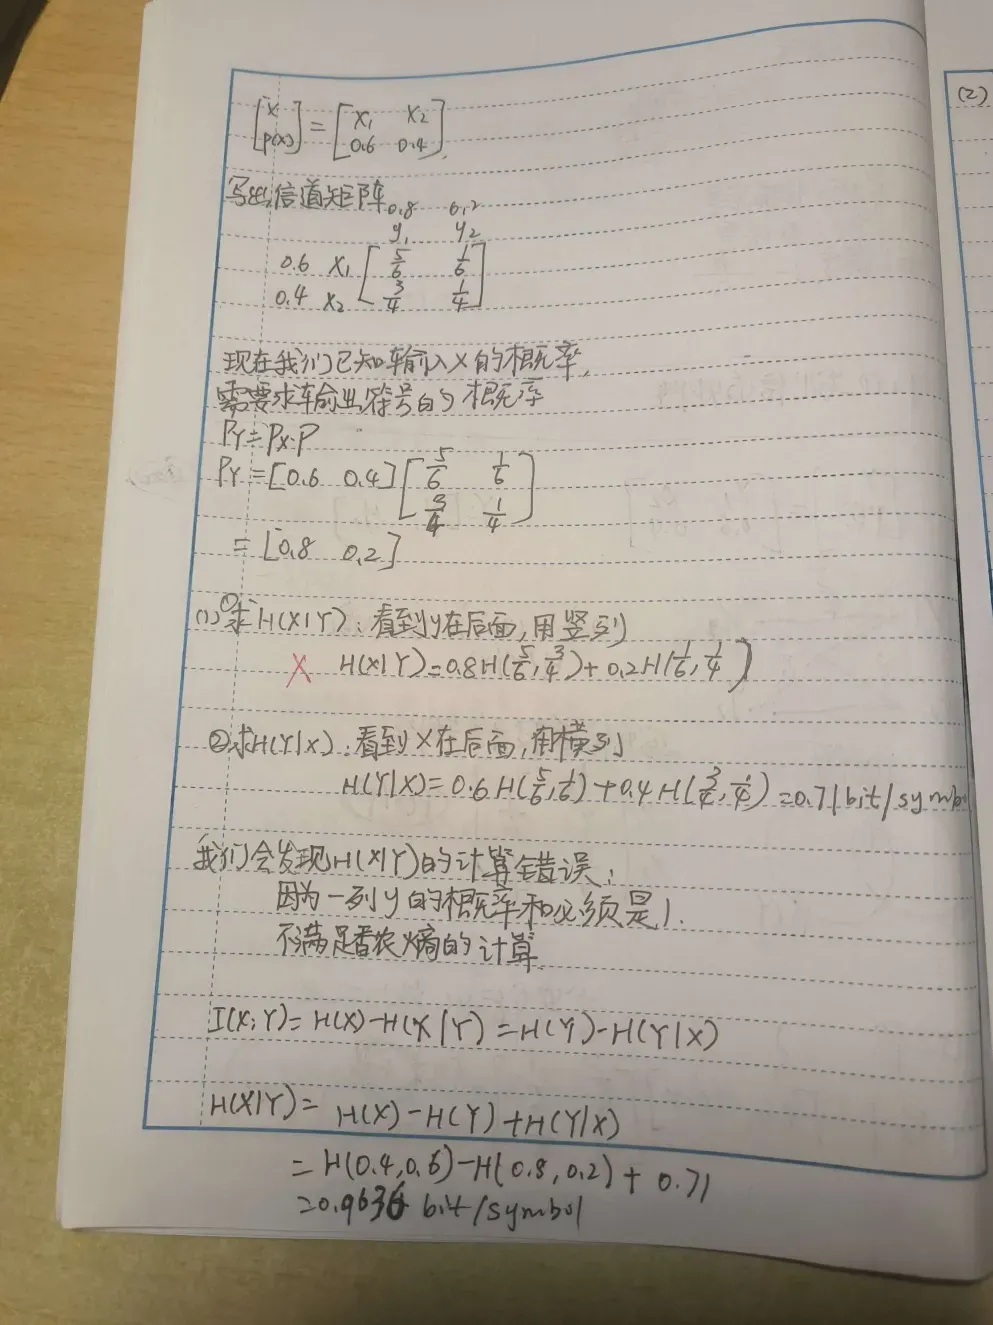 [X P(X)] = [x₁ x₂
0.6 0.4]
写出信道矩阵 0.8 0.2
y₁ y₂
0.6 x₁ [5/6 1/6
0.4 x₂ 3/4 1/4]
现在我们已知输入X的概率,
需要求输出符号的概率
PY=PX·P
PY=[0.6 0.4][5/6 1/6
3/4 1/4]
=[0.8 0.2]
(1)①求H(X|Y):看到y在后面,用竖列
X H(X|Y)=0.8H(5/6,3/4)+0.2H(1/6,1/4)
②求H(Y|X):看到X在后面,用横列
H(Y|X)=0.6H(5/6,1/6)+0.4H(3/4,1/4)=0.71bit/symbol
我们会发现H(X|Y)的计算错误:
因为一列y的概率和必须是1.
不满足香农熵的计算
I(X;Y)=H(X)-H(X|Y)=H(Y)-H(Y|X)
H(X|Y)=H(X)-H(Y)+H(Y|X)
=H(0.4,0.6)-H(0.8,0.2)+0.71
=0.9636 bit/symbol
(2)